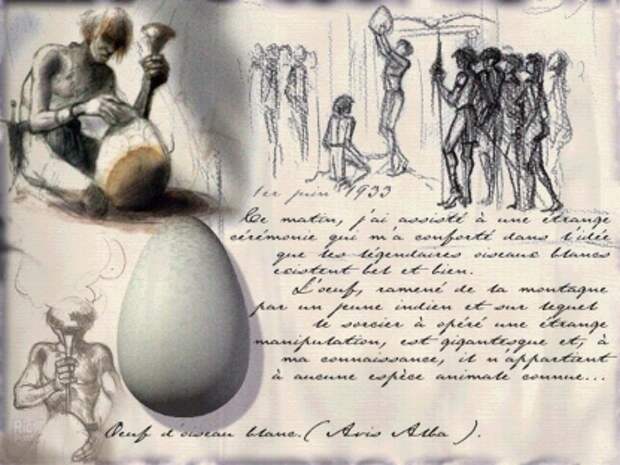 1er juin 1933
Ce matin, j'ai assisté à une étrange
cérémonie qui m'a conforté dans l'idée
que les légendaires oiseaux blancs
existent bel et bien.
L'oeuf, ramené de la montagne
par un jeune indien et sur lequel
le sorcier à opéré une étrange
manipulation, est gigantesque et, à
ma connaissance, il n'appartient
à aucune espèce animale connue...
Oeuf d'oiseau blanc. ( Avis Alba ).